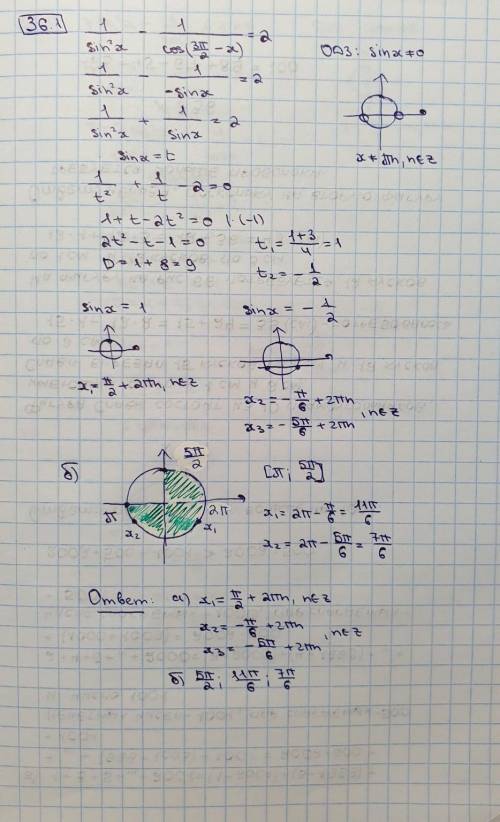 36.1
1/sin²x - 1/cos(3π/2 - x) = 2
ОДЗ: sinx ≠ 0
1/sin²x - 1/-sinx = 2
1/sin²x + 1/sinx = 2
x ≠ πn, n∈Z
sinx = t
1/t² + 1/t - 2 = 0
1 + t - 2t² = 0 |·(-1)
2t² - t - 1 = 0
t₁ = (1+3)/4 = 1
D = 1 + 8 = 9
t₂ = -1/2
sinx = 1
sinx = -1/2
x₁ = π/2 + 2πn, n∈Z
x₂ = -π/6 + 2πn
x₃ = -5π/6 + 2πn , n∈Z
б)
5π/2
π
2π
x₂
x₁
[π; 5π/2]
x₁ = 2π - π/6 = 11π/6
x₂ = 2π - 5π/6 = 7π/6
Ответ: а) x₁ = π/2 + 2πn, n∈Z
x₂ = -π/6 + 2πn
x₃ = -5π/6 + 2πn , n∈Z
б) 5π/2; 11π/6; 7π/6